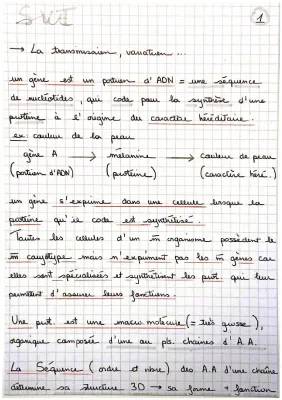 SVT
1
→ La transmission, variation ...
un gène est un portion d'ADN = une séquence
de nucléotides, qui code pour la synthèse d'une
protéine à l'origine du caractère héréditaire.
ex: couleur de la peau
gène A → mélanine → couleur de peau
(portion d'ADN) (protéine) (caractère héré.)
un gène s'exprime dans une cellule lorsque la
protéine qu'il code est synthétisé.
Toutes les cellules d'un m̄ organisme possèdent le
m̄ caryotype mais n'expriment pas les m̄ gènes car
elles sont spécialisées et synthétisent les prot. qui leur
permettent d'assurer leurs fonctions.
Une prot. est une macromolécule (= très grosse),
organique composée d'une ou pls. chaînes d'A.A.
La Séquence (ordre et nbre) des A.A d'une chaîne
détermine sa structure 3D → sa forme + fonction